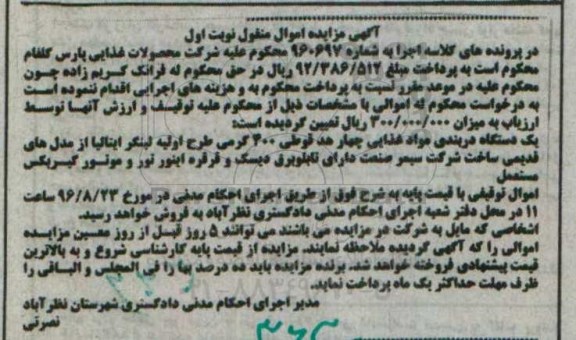 آگهی مزایده اموال منقول نوبت اول
در پرونده های کلاسه اجرا به شماره ۹۶۰۶۹۷ محکوم علیه شرکت محصولات غذایی پارس کلفام
محکوم است به پرداخت مبلغ ۹۲/۳۸۶/۵۱۲ ریال در حق محکوم له فرانک کریم زاده چون
محکوم علیه در موعد مقرر نسبت به پرداخت محکوم به و هزینه های اجرایی اقدام ننموده است
به درخواست محکوم له اموالی با مشخصات ذیل از محکوم علیه توقیف و ارزش آنها توسط
ارزیاب به میزان ۳۰۰/۰۰۰/۰۰۰ ریال تعیین گردیده است:
یک دستگاه دربندی مواد غذایی چهار هد قوطی ۴۰۰ گرمی طرح اولیه لینگر ایتالیا از مدل های
قدیمی ساخت شرکت سیمر صنعت دارای تابلوبرق دیسک و قرقره اینور تور و موتور گیربکس
مستعمل
اموال توقیفی با قیمت پایه به شرح فوق از طریق اجرای احکام مدنی در مورخ ۹۶/۸/۲۳ ساعت
۱۱ در محل دفتر شعبه اجرای احکام مدنی دادگستری نظرآباد به فروش خواهد رسید.
اشخاصی که مایل به شرکت در مزایده می باشند می توانند ۵ روز قبل از روز معین مزایده
اموالی را که آگهی گردیده ملاحظه نمایند. مزایده از قیمت پایه کارشناسی شروع و به بالاترین
قیمت پیشنهادی فروخته خواهد شد. برنده مزایده باید ده درصد بها را فی المجلس و الباقی را
ظرف مهلت حداکثر یک ماه پرداخت نماید.
مدیر اجرای احکام مدنی دادگستری شهرستان نظرآباد
نصرتی